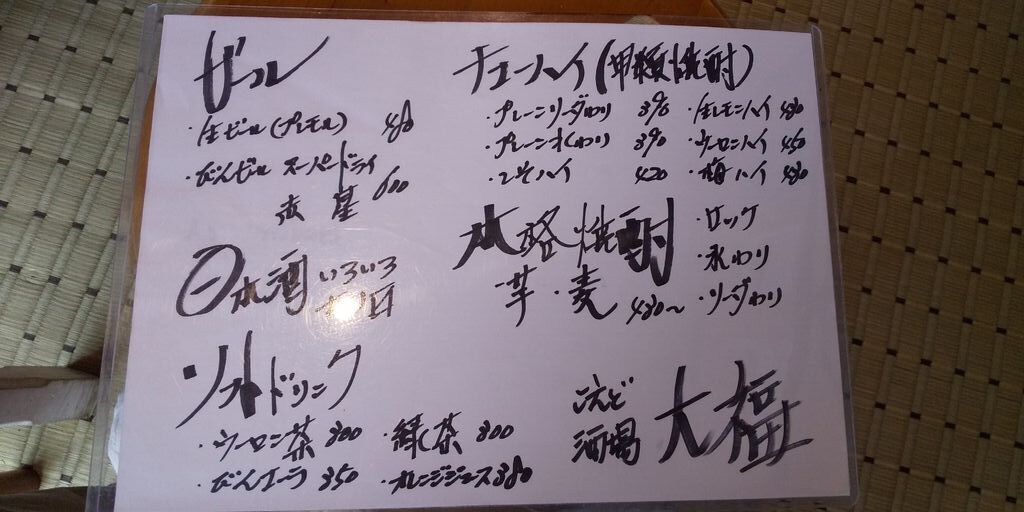 ビール
・生ビール(プレモル) 480
・びんビール スーパードライ
赤星 600
日本酒 いろいろ
ソフトドリンク
・ウーロン茶 300 ・緑茶 300
・びんコーラ 350 ・オレンジジュース 380
チューハイ(甲類焼酎)
・プレーンソーダわり 390 ・生レモンハイ 480
・プレーン水わり 390 ・ウーロンハイ 450
・しそハイ 420 ・梅ハイ 480
本格焼酎
・芋・麦 480〜
・ロック
・水わり
・ソーダわり
こえど
酒場 大福